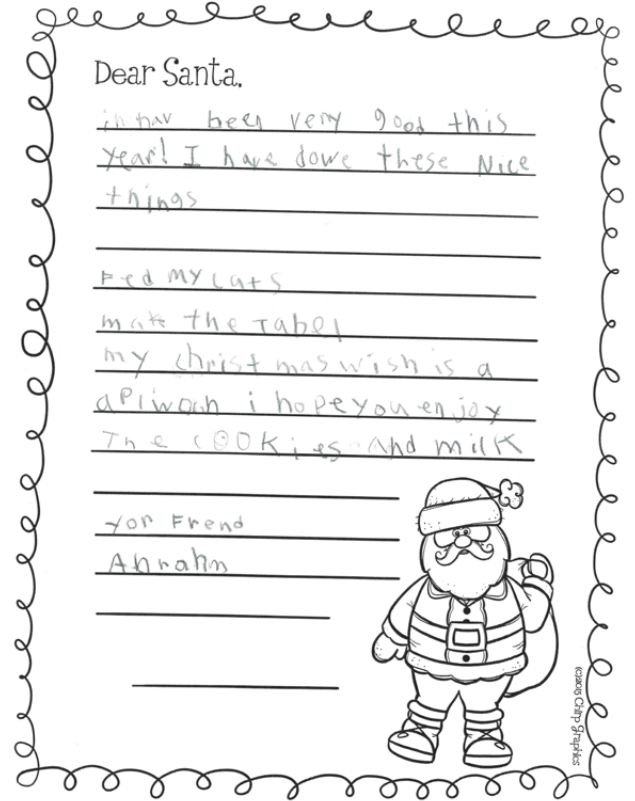 Dear Santa,
i hav been very good this
year! I have dowe these Nice
things
Fed my cats
mak the Tabel
my christmas wish is a
aplwoch i hope you enjoy
The cookies and milk
yor Frend
Ahrahm
(c)2015 Chirp Graphics